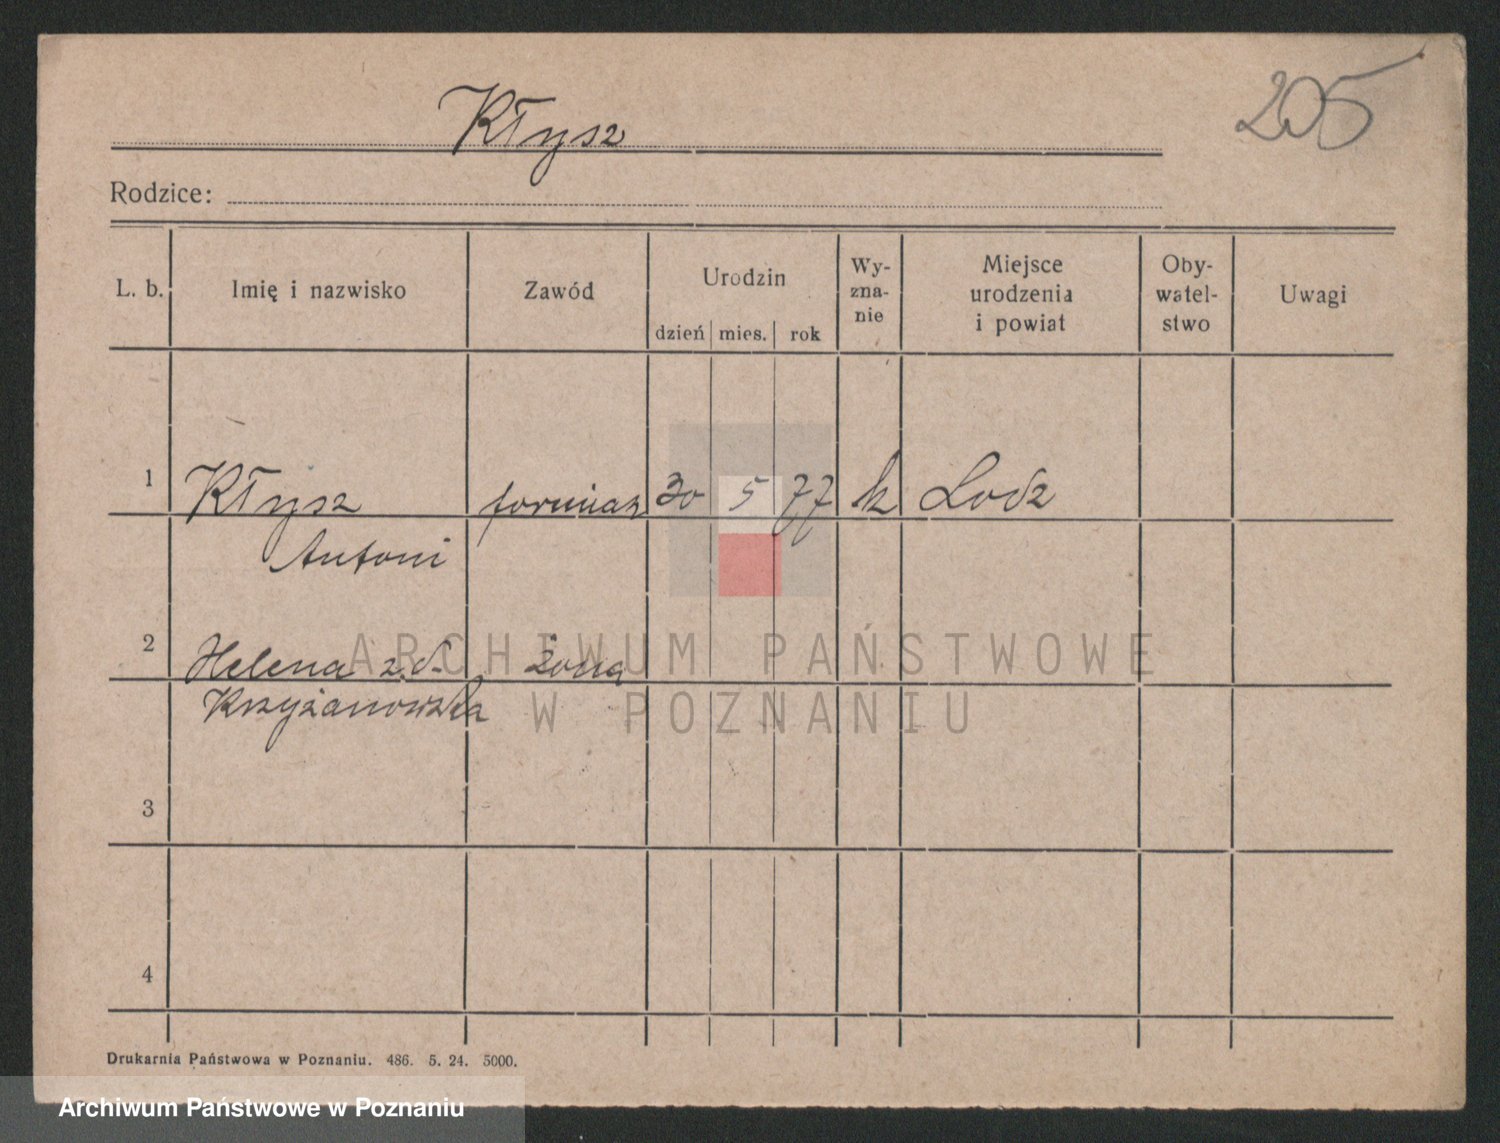 Kłysz
205
Rodzice:
L. b. Imię i nazwisko Zawód Urodzin dzień mies. rok Wy-zna-nie Miejsce urodzenia i powiat Oby-watel-stwo Uwagi
1 Kłysz forniarz 30 5 77 k Lodz
Antoni
2 Helena z. d. żona
Krzyżanowska
3
4
ARCHIWUM PAŃSTWOWE
W POZNANIU
Drukarnia Państwowa w Poznaniu. 486. 5. 24. 5000.
Archiwum Państwowe w Poznaniu